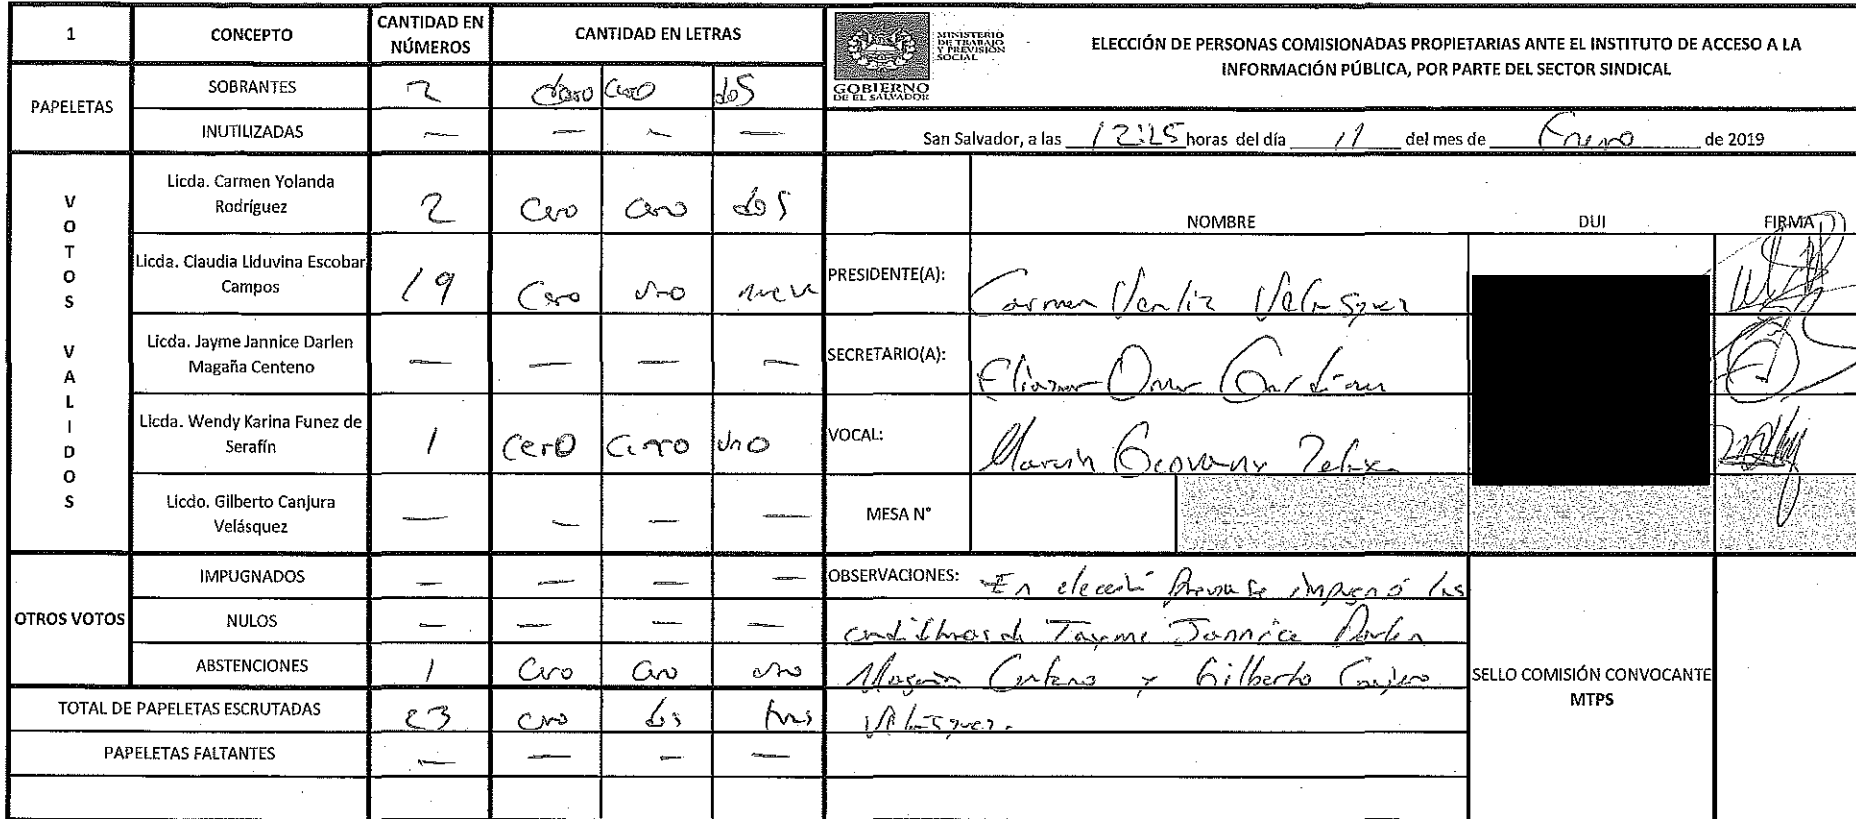 1 CONCEPTO CANTIDAD EN NÚMEROS CANTIDAD EN LETRAS
PAPELETAS
SOBRANTES 2 cero cero dos
INUTILIZADAS — — — —
VOTOS VALIDOS
Licda. Carmen Yolanda Rodríguez 2 Cero cero dos
Licda. Claudia Liduvina Escobar Campos 19 Cero uno nueve
Licda. Jayme Jannice Darlen Magaña Centeno — — — —
Licda. Wendy Karina Funez de Serafín 1 cero cero uno
Licdo. Gilberto Canjura Velásquez — — — —
OTROS VOTOS
IMPUGNADOS — — — —
NULOS — — — —
ABSTENCIONES 1 Cero Cero uno
TOTAL DE PAPELETAS ESCRUTADAS 23 cero dos tres
PAPELETAS FALTANTES — — — —
MINISTERIO
DE TRABAJO
Y PREVISIÓN
SOCIAL
GOBIERNO
DE EL SALVADOR
ELECCIÓN DE PERSONAS COMISIONADAS PROPIETARIAS ANTE EL INSTITUTO DE ACCESO A LA
INFORMACIÓN PÚBLICA, POR PARTE DEL SECTOR SINDICAL
San Salvador, a las 12:25 horas del día 11 del mes de Enero de 2019
NOMBRE DUI FIRMA
PRESIDENTE(A): Carmen Velásquez
SECRETARIO(A): Omar
VOCAL: Marvin Geovany
MESA N°
OBSERVACIONES: En elección previa se impugnó las
candidaturas de Jayme Jannice Darlen
Magaña Centeno y Gilberto Canjura
Velásquez.
SELLO COMISIÓN CONVOCANTE
MTPS